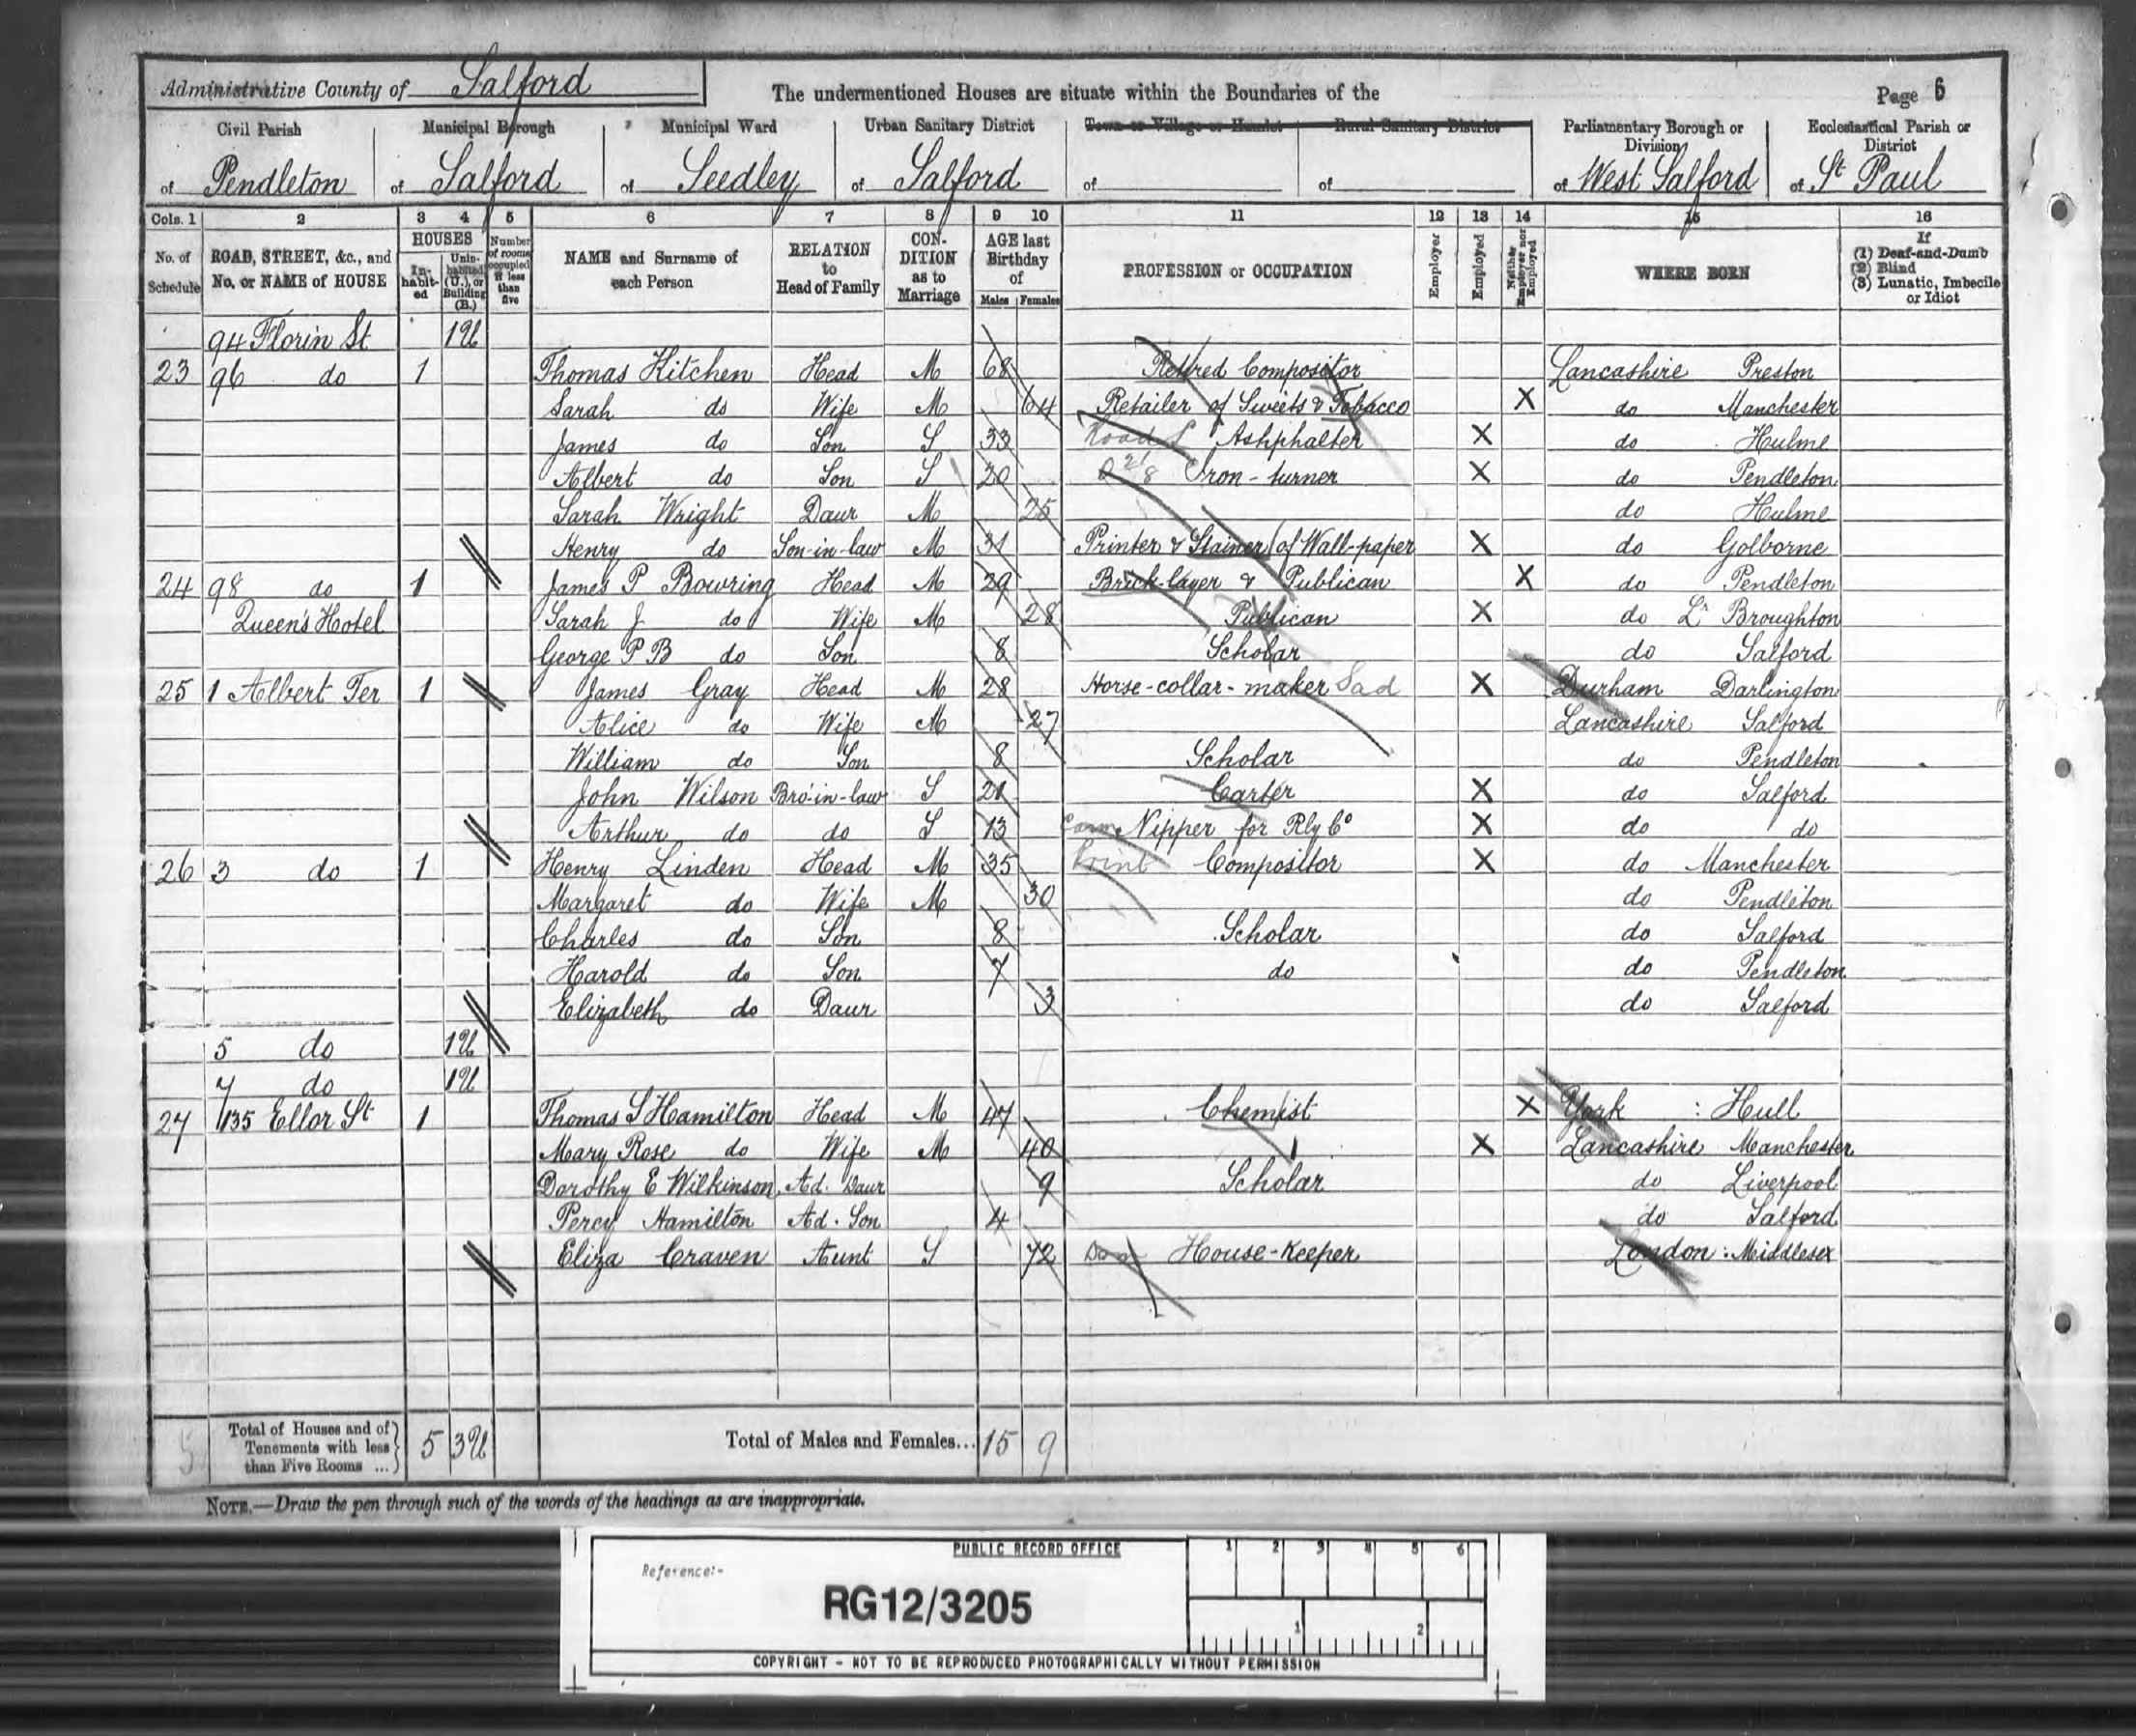 Administrative County of Salford The undermentioned Houses are situate within the Boundaries of the Page 6
Civil Parish Municipal Borough Municipal Ward Urban Sanitary District Town or Village or Hamlet Rural Sanitary District Parliamentary Borough or Division Ecclesiastical Parish or District
of Pendleton of Salford of Seedley of Salford of of of West Salford of St Paul
Cols. 1 2 3 4 5 6 7 8 9 10 11 12 13 14 15 16
No. of Schedule ROAD, STREET, &c., and No. or NAME of HOUSE HOUSES Inhabited Uninhabited (U.), or Building (B.) Number of rooms occupied if less than five NAME and Surname of each Person RELATION to Head of Family CONDITION as to Marriage AGE last Birthday of Males Females PROFESSION or OCCUPATION Employer Employed Neither Employer nor Employed WHERE BORN If (1) Deaf-and-Dumb (2) Blind (3) Lunatic, Imbecile or Idiot
94 Florin St 1U
23 96 do 1 Thomas Kitchen Head M 68 Retired Compositor Lancashire Preston
Sarah do Wife M 64 Retailer of Sweets & Tobacco X do Manchester
James do Son S 33 Road Ashphalter X do Hulme
Albert do Son S 20 Iron-turner X do Pendleton
Sarah Wright Daur M 25 do Hulme
Henry do Son-in-law M 31 Printer & Stainer of Wall-paper X do Golborne
24 98 do 1 James P Bowring Head M 29 Brick-layer & Publican X do Pendleton
Queen's Hotel Sarah J do Wife M 28 Publican X do Lr Broughton
George P B do Son 8 Scholar do Salford
25 1 Albert Ter 1 James Gray Head M 28 Horse-collar-maker Sad X Durham Darlington
Alice do Wife M 27 Lancashire Salford
William do Son 8 Scholar do Pendleton
John Wilson Bro-in-law S 21 Carter X do Salford
Arthur do do S 13 Nipper for Rly Co X do do
26 3 do 1 Henry Linden Head M 35 Print Compositor X do Manchester
Margaret do Wife M 30 do Pendleton
Charles do Son 8 Scholar do Salford
Harold do Son 7 do do Pendleton
Elizabeth do Daur 3 do Salford
5 do 1U
7 do 1U
27 135 Ellor St 1 Thomas S Hamilton Head M 47 Chemist X York : Hull
Mary Rose do Wife M 40 X Lancashire Manchester
Dorothy E Wilkinson Ad. Daur 9 Scholar do Liverpool
Percy Hamilton Ad. Son 4 do Salford
Eliza Craven Aunt S 72 Dom House-Keeper London : Middlesex
Total of Houses and of Tenements with less than Five Rooms ... 5 3U Total of Males and Females... 15 9
NOTE.—Draw the pen through such of the words of the headings as are inappropriate.
PUBLIC RECORD OFFICE 1 2 3 4 5 6
Reference:-
RG12/3205
1 2
COPYRIGHT - NOT TO BE REPRODUCED PHOTOGRAPHICALLY WITHOUT PERMISSION